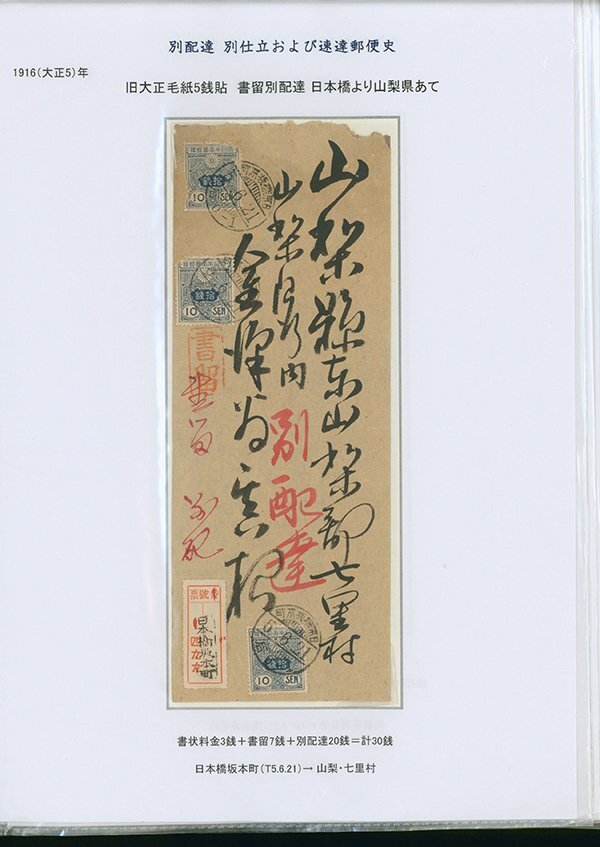 別配達 別仕立および速達郵便史
1916(大正5)年
旧大正毛紙5銭貼 書留別配達 日本橋より山梨県あて
山梨縣東山梨郡七里村
別配達
書留
書留
別配
10 SEN
拾銭
10 SEN
拾銭
10 SEN
拾銭
票號番
日本橋坂本町
書状料金3銭+書留7銭+別配達20銭=計30銭
日本橋坂本町(T5.6.21)→ 山梨・七里村